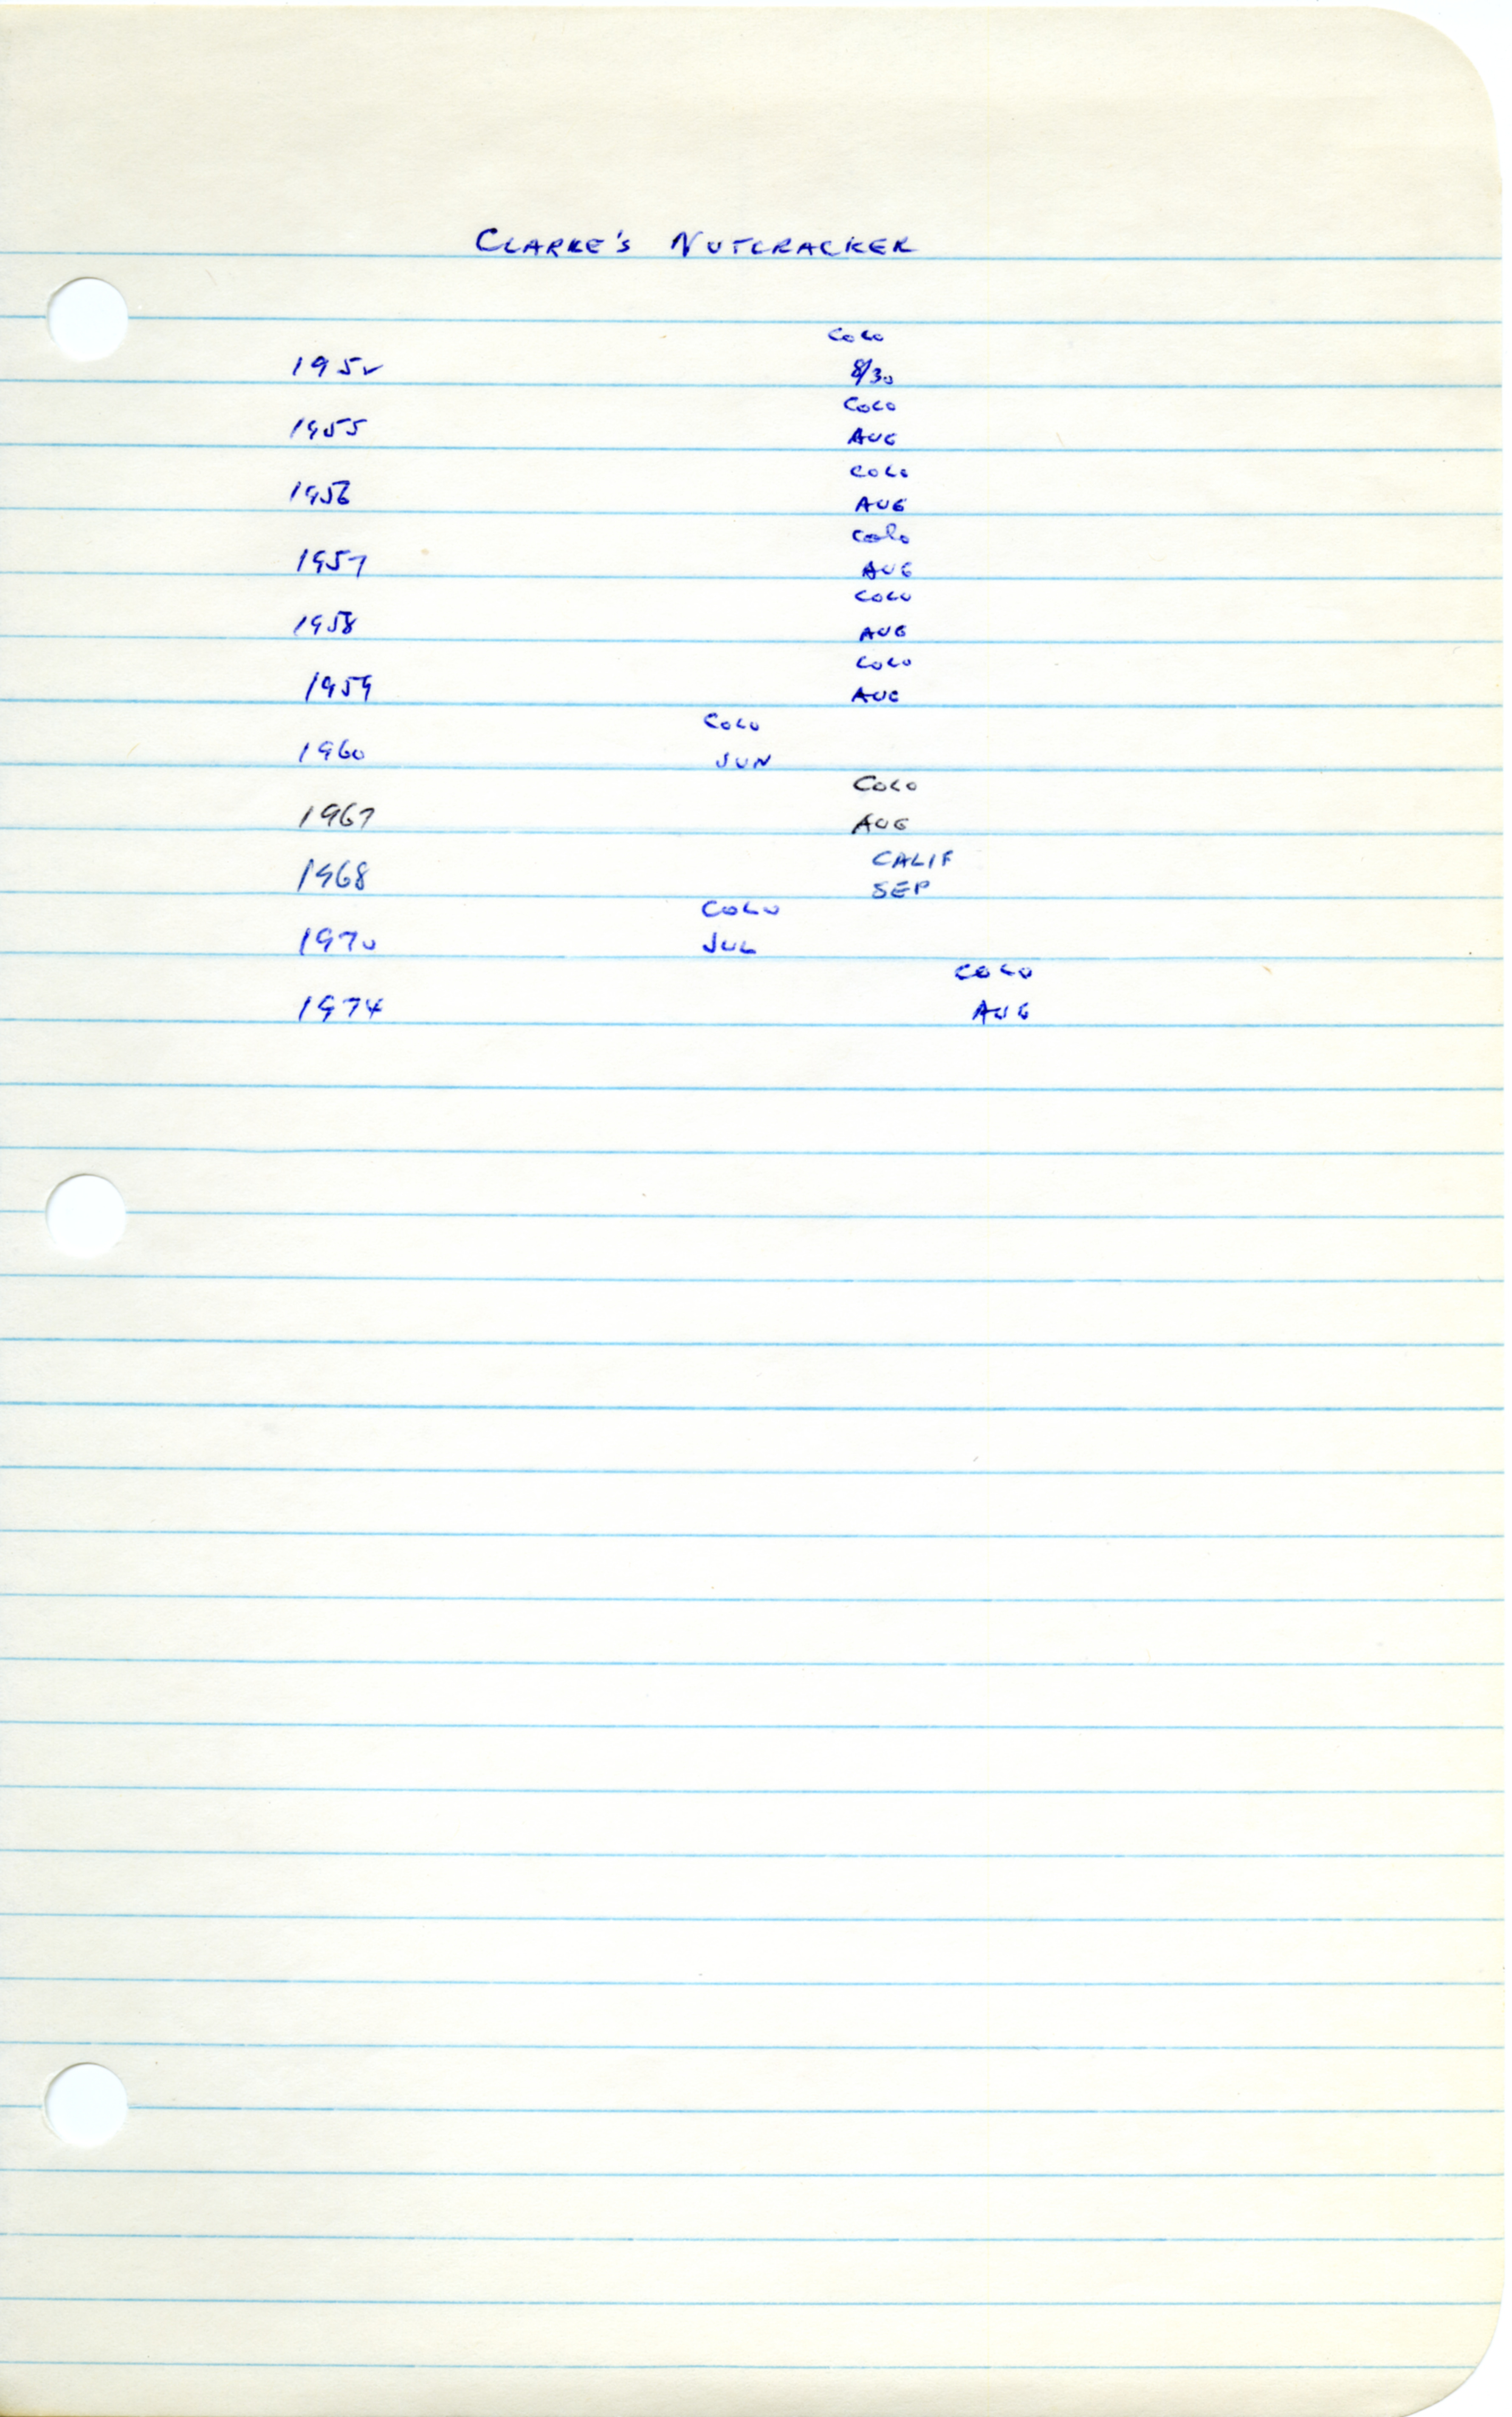 CLARKE'S NUTCRACKER
COLO
1952 8/30
COLO
1955 AUG
COLO
1956 AUG
COLO
1957 AUG
COLO
1958 AUG
COLO
1959 AUG
COLO
1960 JUN
COLO
1967 AUG
CALIF
1968 SEP
COLO
1970 JUL
COLO
1974 AUG